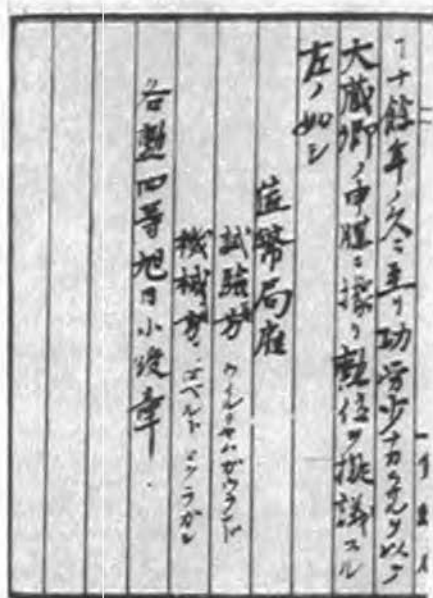 コト十餘年ノ久ニ至リ功労少ナカラサルヲ以テ
大蔵卿ノ申牒ニ據リ勲位ヲ擬議スル
左ノ如シ
造幣局雇
試験方 ウイルリヤムガウランド
機械方 ロベルト マクラガン
各勲四等旭日小綬章